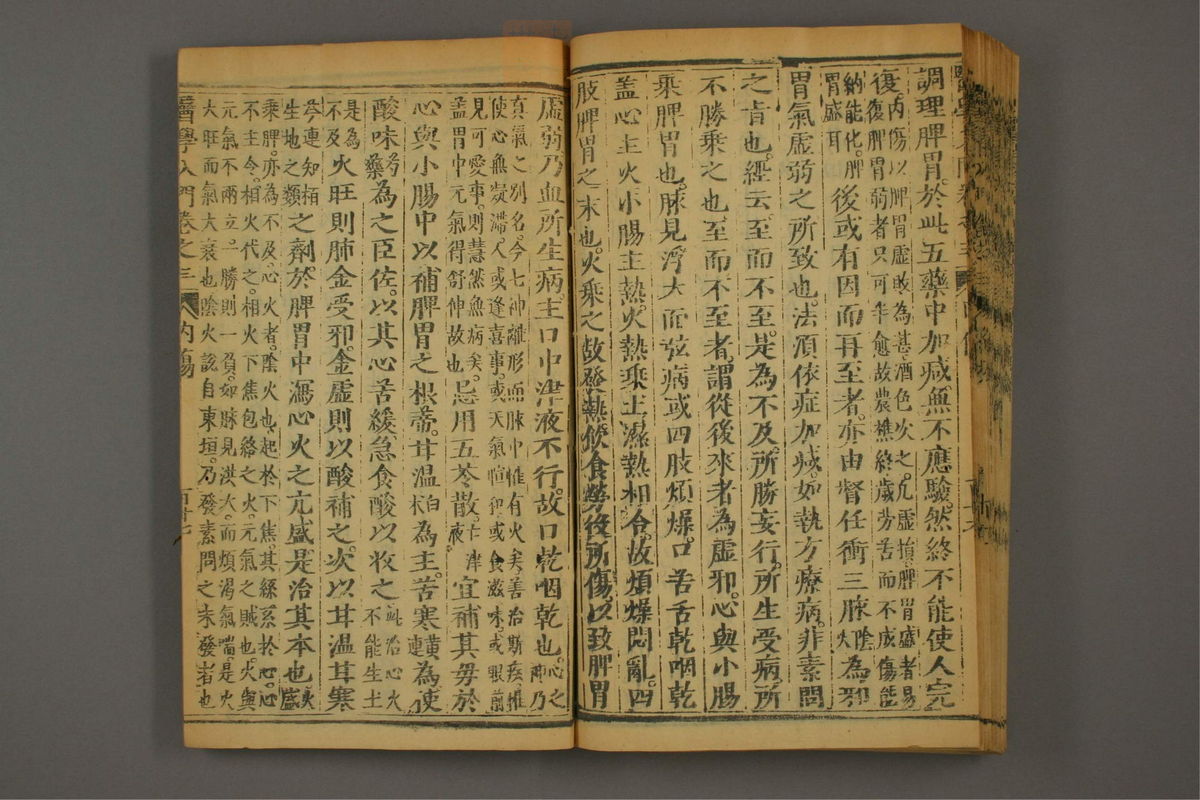 調理脾胃於此五藥中加减無不應驗然終不能使人完
復內傷以脾胃虛敗為甚酒色次之凡虛損脾胃盛者易
復脾胃弱者只可半愈故農樵終歲勞苦而不成傷能
納能化脾
胃盛耳
後或有因而再至者亦由督任衝三脉陰
火為邪
胃氣虛弱之所致也法須依症加减如執方療病非素問
之肯也經云至而不至是為不及所勝妄行所生受病所
不勝乘之也至而不至者謂從後來者為虛邪心與小腸
乘脾胃也脉見浮大而弦病或四肢煩燥口苦舌乾咽乾
盖心主火小腸主熱火熱乘土濕熱相合故煩燥悶亂四
肢脾胃之末也火乘之故發熱飲食勞役所傷以致脾胃
虛弱乃血所生病主口中津液不行故口乾咽乾也心之
神乃
真氣之別名今七神離形而脉中惟有火矣善治斯疾惟
使心無凝滯人或逢喜事或天氣暄和或食滋味或眼前
見可愛事則慧然無病矣
盖胃中元氣得舒伸故也
忌用五苓散亡津
液
宜補其母於
心與小腸中以補脾胃之根蒂甘溫白
术為主苦寒黃
連為使
酸味芍
藥為之臣佐以其心苦緩急食酸以收之此治心火
不能生土
是為
不及火旺則肺金受邪金虛則以酸補之次以甘溫甘寒
芩連知栢
生地之類之劑於脾胃中瀉心火之亢盛是治其本也火
盛
乘脾亦為不及心火者陰火也起於下焦其繇系於心心
不主令相火代之相火下焦包絡之火元氣之賊也火與
元氣不兩立一勝則一負如脉見洪大而煩渴氣喘是火
大旺而氣大衰也陰火該自東垣乃發素問之未發者也
醫學入門卷之三 內傷